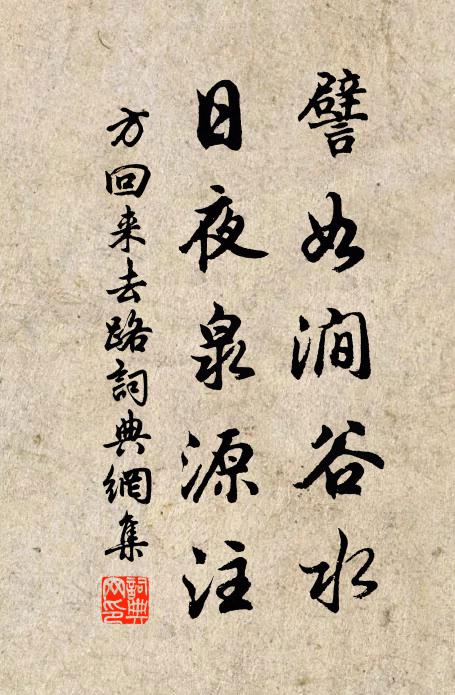 譬如澗谷水
日夜泉源注
方回来去路詞典網集
詞典網印